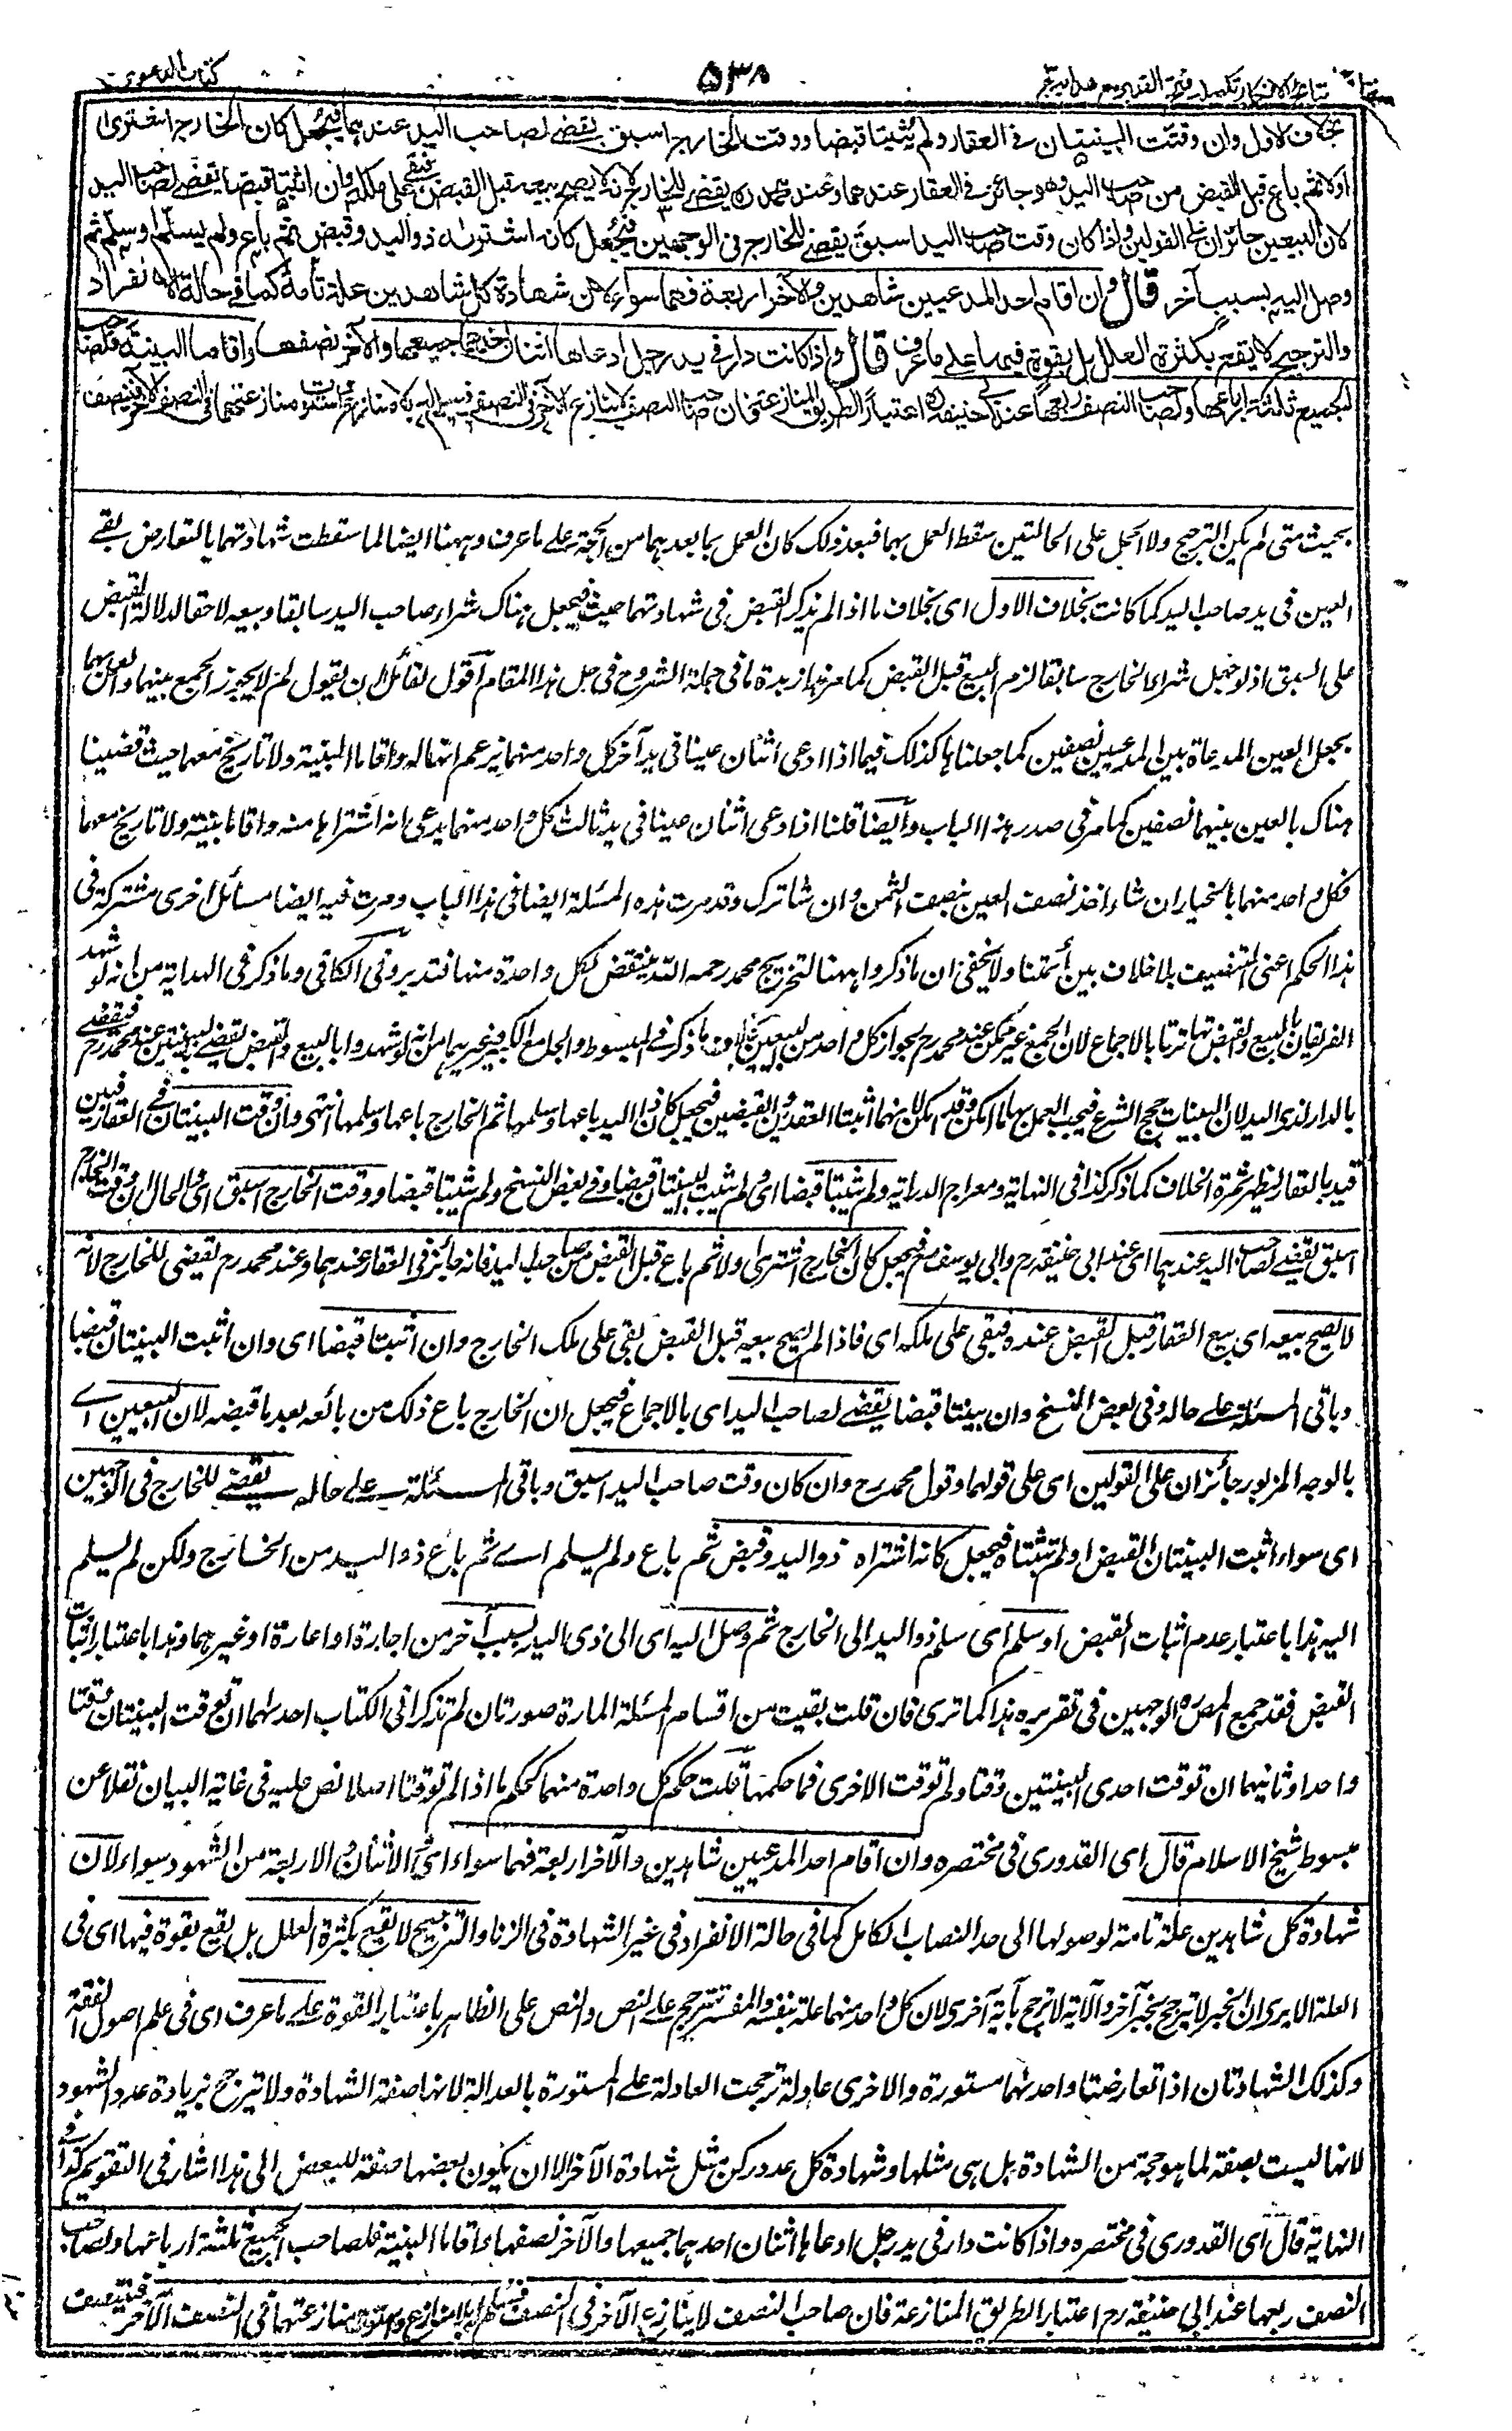 نتائج الافكار تكملة فتح القدير مع هداية ٥٣٨ كتاب الدعوى
بخلاف الاول وان وقتت البينتان فى العقار ولم يثبتا قبضا ووقت الخارج اسبق يقضى لصاحب اليد عندهما فيجعل كان الخارج اشترى
اولا ثم باع قبل القبض من صاحب اليد وهو جائز فى العقار عندهما وعند محمد يقضى للخارج لانه لا يصح بيعه قبل القبض فبقى على ملكه وان اثبتا قبضا يقضى لصاحب اليد
لان البيعين جائزان على القولين واذا كان وقت صاحب اليد اسبق يقضى للخارج فى الوجهين فيجعل كانه اشتراه ذو اليد وقبض ثم باع ولم يسلم او سلم ثم
وصل اليه بسبب آخر قال وان اقام احد المدعيين شاهدين والآخر اربعة فهما سواء لان شهادة كل شاهدين علة تامة كما فى حالة الانفراد
والترجيح لا يقع بكثرة العلل بل بقوة فيها على ما عرف قال واذا كانت دار فى يد رجل ادعاها اثنان احدهما جميعها والآخر نصفها واقاما البينة فلصاحب
الجميع ثلثة ارباعها ولصاحب النصف ربعها عند ابى حنيفة ره اعتبارا لطريق المنازعة فان صاحب النصف لا ينازع الآخر فى النصف فسلم له بلا منازع واستوت منازعتهما فى النصف الآخر فينصف
بحيث متى لم يكن الترجيح ولا الحمل على الحالتين سقط العمل بهما فبعد ذلك كان العمل بما بعدهما من الحجة على ما عرف وههنا ايضا لما سقطت شهادتهما بالتعارض بقى
العين فى يد صاحب اليد كما كانت بخلاف الاول اى بخلاف ما اذا لم يذكر القبض فى شهادتهما حيث يجعل هناك شراء صاحب اليد سابقا وبيعه لاحقا لدلالة القبض
على السبق اذ لو جعل شراء الخارج سابقا لزم البيع قبل القبض كما مر هذا زبدة ما فى جملة الشروح فى حل هذا المقام اقول لقائل ان يقول لم لا يجوز الجمع بينهما والعمل بهما
بجعل العين المدعاة بين المدعيين نصفين كما جعلناها كذلك فيما اذا ادعى اثنان عينا فى يد آخر كل واحد منهما يزعم انها له واقاما البينة ولا تاريخ معهما حيث قضينا
هناك بالعين بينهما نصفين كما مر فى صدر هذا الباب وايضا قلنا اذا ادعى اثنان عينا فى يد ثالث كل واحد منهما يدعى انه اشتراها منه واقاما بينة ولا تاريخ معهما
فكل واحد منهما بالخيار ان شاء اخذ نصف العين بنصف الثمن وان شاء ترك وقد مرت هذه المسئلة ايضا فى هذا الباب ومرت فيه ايضا مسائل اخرى مشتركة فى
هذا الحكم اعنى التنصيف بلا خلاف بين أئمتنا ولا يخفى ان ما ذكروا ههنا لتخريج محمد رحمه الله ينتقض بكل واحدة منها فتدبر وفى الكافى وما ذكر فى الهداية من انه لو شهد
الفريقان بالبيع والقبض تهاترتا بالاجماع لان الجمع غير ممكن عند محمد رح لجواز كل واحد من البيعين بخلاف ما ذكر فى المبسوط والجامع الكبير وغيرهما من انه لو شهدوا بالبيع والقبض يقضى بالبينتين عند محمد رح فيقضى
بالدار لذى اليد لان البينات حجج الشرع فيجب العمل بها ما امكن وقد امكن لانهما اثبتا العقدين والقبضين فيجعل كان ذا اليد باعها وسلمها ثم الخارج باعها وسلمها انتهى وان وقتت البينتان فى العقار
قيد بالعقار ليظهر ثمرة الخلاف كما ذكر كذا فى النهاية ومعراج الدراية ولم يثبتا قبضا اى ولم تثبت البينتان قبضا وفى بعض النسخ ولم تثبتا قبضا ووقت الخارج اسبق اى والحال ان وقت الخارج
اسبق يقضى لصاحب اليد عندهما اى عند ابى حنيفة رح وابى يوسف رح فيجعل كان الخارج اشترى اولا ثم باع قبل القبض من صاحب اليد فانه جائز فى العقار عندهما وعند محمد رح يقضى للخارج لانه
لا يصح بيعه اى بيع العقار قبل القبض عنده فبقى على ملكه اى فاذا لم يصح بيعه قبل القبض بقى على ملك الخارج وان اثبتا قبضا اى وان اثبت البينتان قبضا
وباقى المسئلة على حاله وفى بعض النسخ وان بينتا قبضا يقضى لصاحب اليد اى بالاجماع فيجعل ان الخارج باع ذلك من بائعه بعد ما قبضه لان البيعين اى
بالوجه المزبور جائزان على القولين اى على قولهما وقول محمد رح وان كان وقت صاحب اليد اسبق وباقى المسئلة على حاله يقضى للخارج فى الوجهين
اى سواء اثبت البينتان القبض او لم تثبتاه فيجعل كانه اشتراه ذو اليد وقبض ثم باع ولم يسلم اى ثم باع ذو اليد من الخارج ولكن لم يسلم
اليه هذا باعتبار عدم اثبات القبض او سلم اى سلم ذو اليد الى الخارج ثم وصل اليه اى الى ذى اليد بسبب آخر من اجارة او اعارة او غيرهما وهذا باعتبار اثبات
القبض فقد جمع المص ره الوجهين فى تقريره هذا كما ترى فان قلت بقيت من اقسام المسئلة المارة صورتان لم تذكرا فى الكتاب احدهما ان توقت البينتان وقتا
واحدا وثانيهما ان توقت احدى البينتين وقتا ولم توقت الاخرى فما حكمهما قلت حكم كل واحدة منهما كحكم ما اذا لم توقتا اصلا نص عليه فى غاية البيان نقلا عن
مبسوط شيخ الاسلام قال اى القدورى فى مختصره وان اقام احد المدعيين شاهدين والآخر اربعة فهما سواء اى الاثنان والاربعة من الشهود سواء لان
شهادة كل شاهدين علة تامة لوصولها الى حد النصاب الكامل كما فى حالة الانفراد فى غير الشهادة فى الزنا والترجيح لا يقع بكثرة العلل بل يقع بقوة فيها اى فى
العلة الا يرى ان الخبر لا يترجح بخبر آخر والآية لا ترجح بآية اخرى لان كل واحد منهما علة بنفسه والمفسر يترجح على النص والنص على الظاهر باعتبار القوة على ما عرف اى فى علم اصول الفقه
وكذلك الشهادتان اذا تعارضتا واحدهما مستورة والاخرى عادلة ترجحت العادلة على المستورة بالعدالة لانها صفة الشهادة ولا تترجح بزيادة عدد الشهود
لانها ليست بصفة لما هو حجة من الشهادة بل هى مثلها وشهادة كل عدد ركن مثل شهادة الآخر الا ان يكون بعضها صفة للبعض الى هذا اشار فى التقويم كذا فى
النهاية قال اى القدورى فى مختصره واذا كانت دار فى يد رجل ادعاها اثنان احدهما جميعها والآخر نصفها واقاما البينة فلصاحب الجميع ثلثة ارباعها ولصاحب
النصف ربعها عند ابى حنيفة رح اعتبارا لطريق المنازعة فان صاحب النصف لا ينازع الآخر فى النصف فسلم له بلا منازع واستوت منازعتهما فى النصف الآخر فينتصف